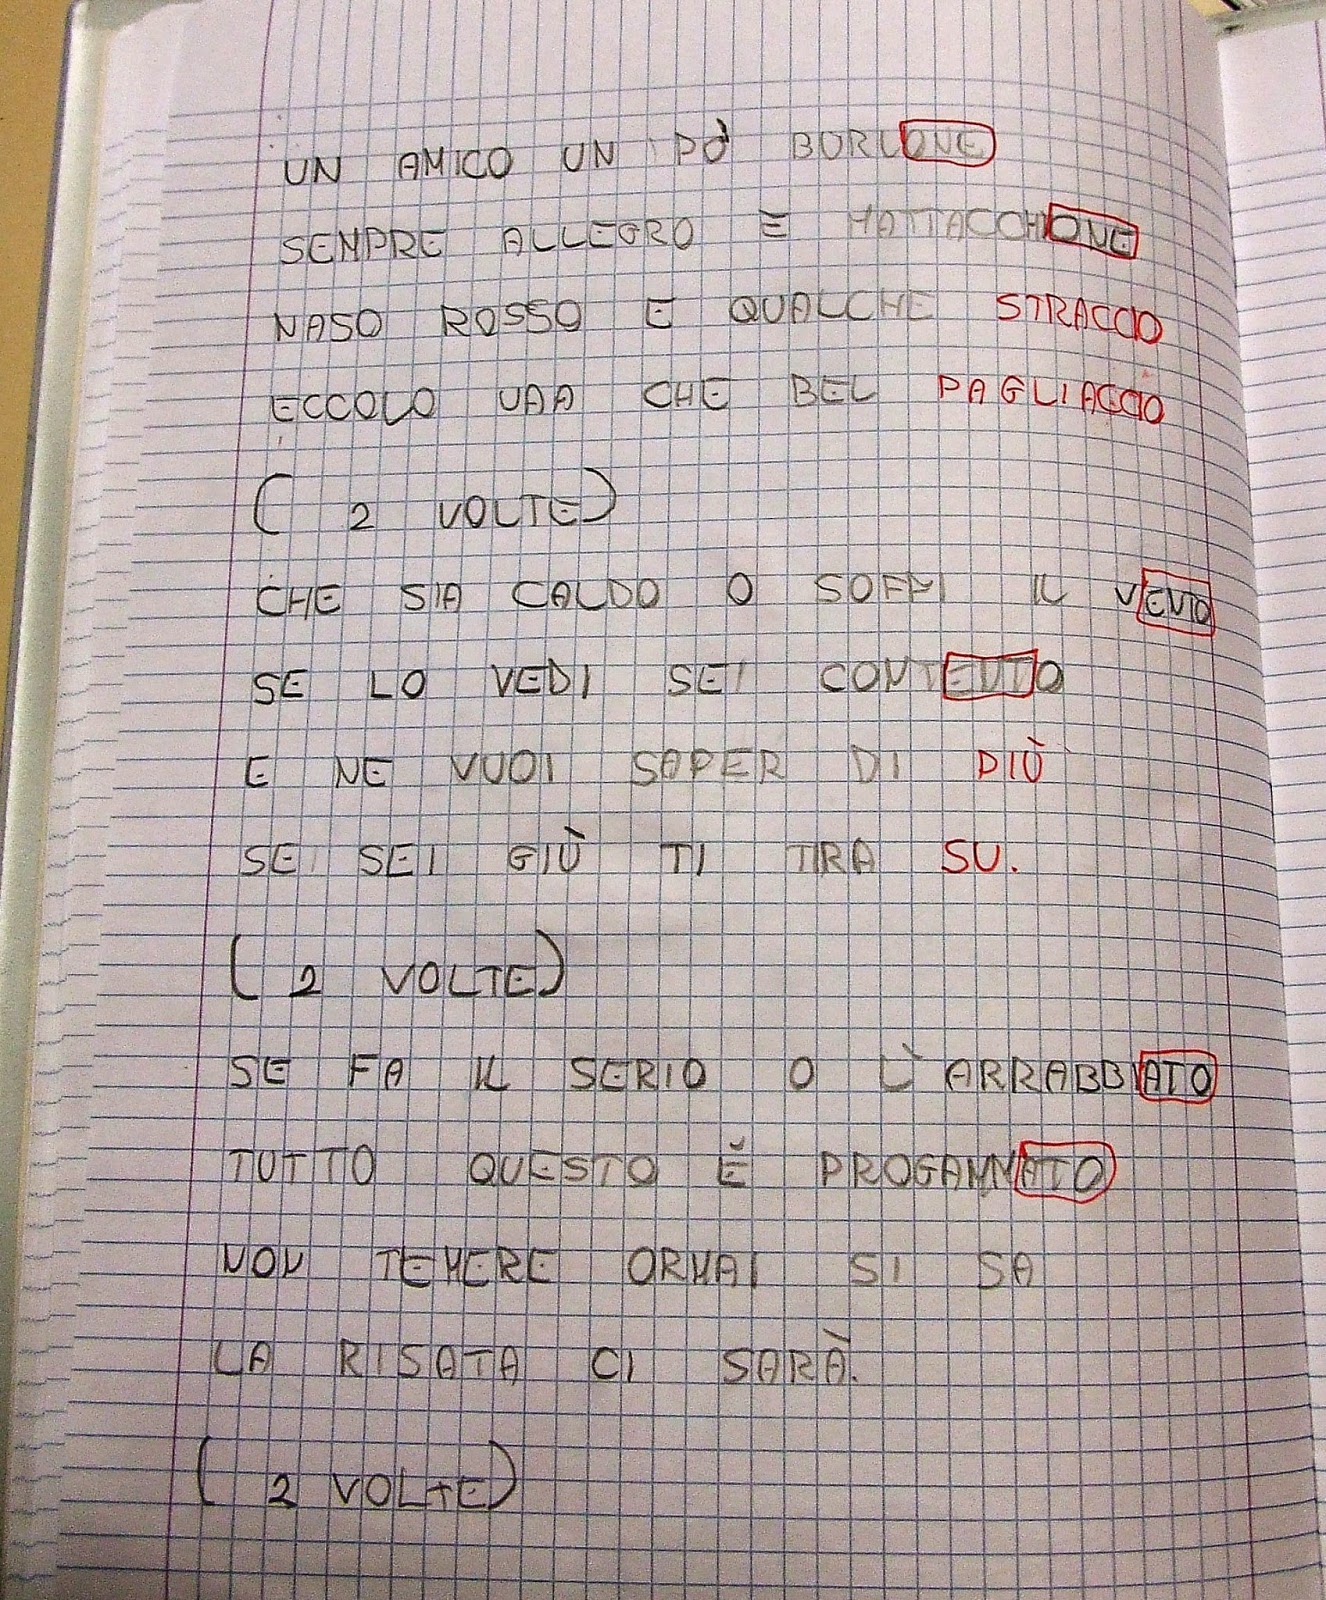 UN AMICO UN PÒ BURLONE
SEMPRE ALLEGRO E MATTACCHIONE
NASO ROSSO E QUALCHE STRACCIO
ECCOLO QUA CHE BEL PAGLIACCIO
( 2 VOLTE)
CHE SIA CALDO O SOFFI IL VENTO
SE LO VEDI SEI CONTENTO
E NE VUOI SAPER DI PIÙ
SE SEI GIÙ TI TIRA SU.
( 2 VOLTE)
SE FA IL SERIO O L'ARRABBIATO
TUTTO QUESTO È PROGAMMATO
NON TEMERE ORMAI SI SA
LA RISATA CI SARÀ.
( 2 VOLTE)